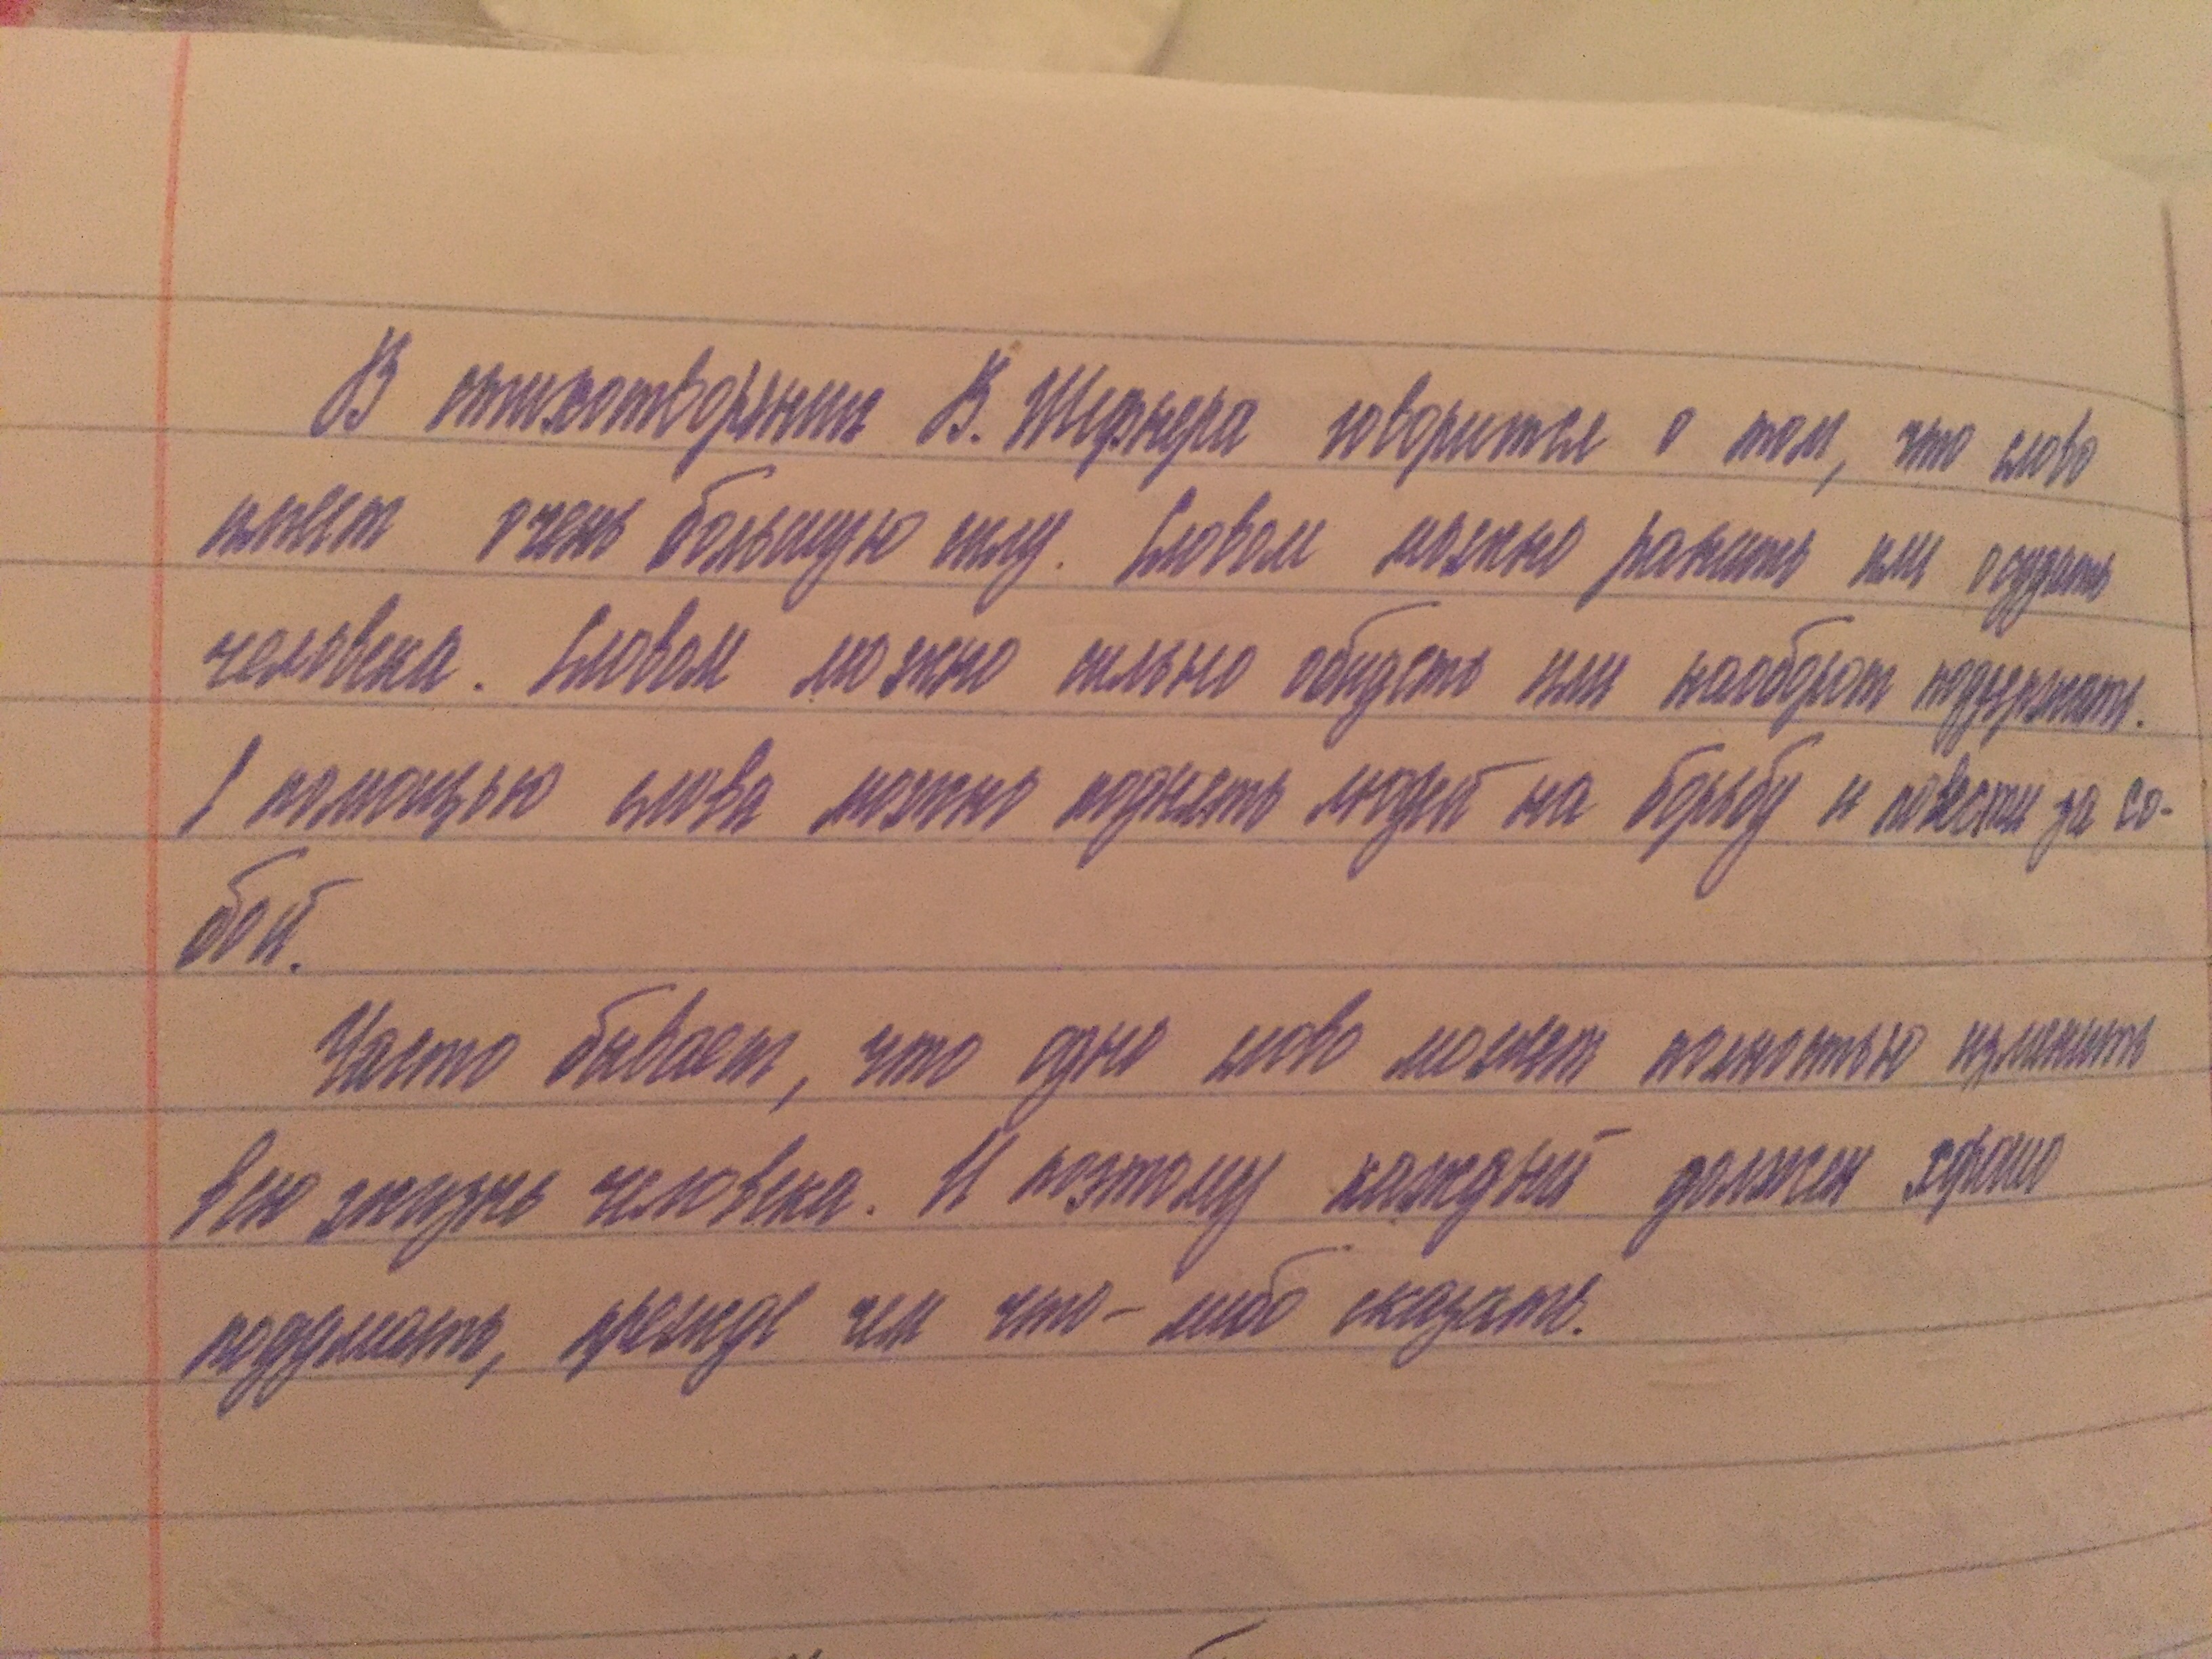 В стихотворении В. Шефнера говорится о том, что слово
имеет очень большую силу. Словом можно ранить или осудить
человека. Словом можно сильно обидеть или наоборот поддержать.
С помощью слова можно поднять людей на борьбу и повести за со-
бой.
Часто бывает, что одно слово может полностью изменить
всю жизнь человека. И поэтому каждый должен хорошо
подумать, прежде чем что-либо сказать.